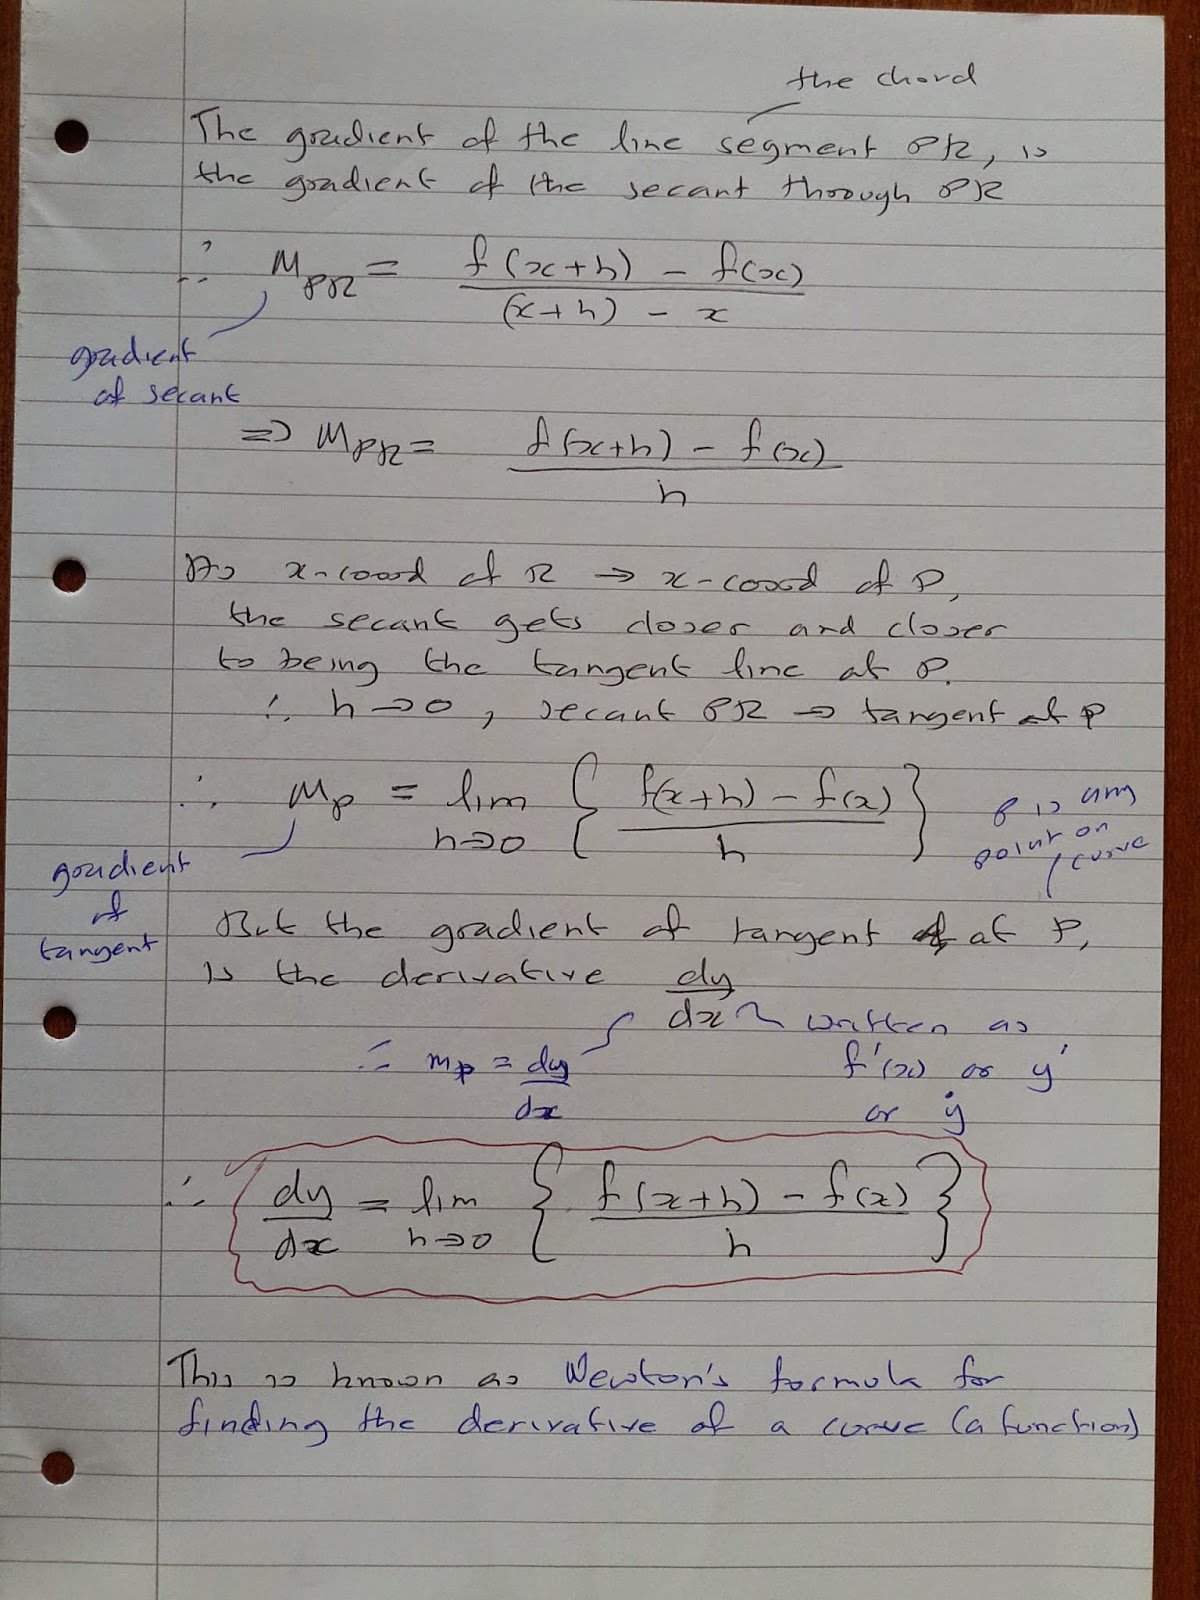 the chord
The gradient of the line segment PR, is
the gradient of the secant through PR
∴ M_PR = f(x+h) - f(x) / (x+h) - x
gradient
of secant
=> M_PR = f(x+h) - f(x) / h
As x-coord of R → x-coord of P,
the secant gets closer and closer
to being the tangent line at P.
∴ h → 0, secant PR → tangent at P
∴ M_P = lim h→0 { f(x+h) - f(x) / h }
P is any
point on
curve
gradient
of
tangent
But the gradient of tangent at P,
is the derivative dy/dx
written as
f'(x) or y'
or ẏ
∴ m_p = dy/dx
∴ dy/dx = lim h→0 { f(x+h) - f(x) / h }
This is known as Newton's formula for
finding the derivative of a curve (a function)